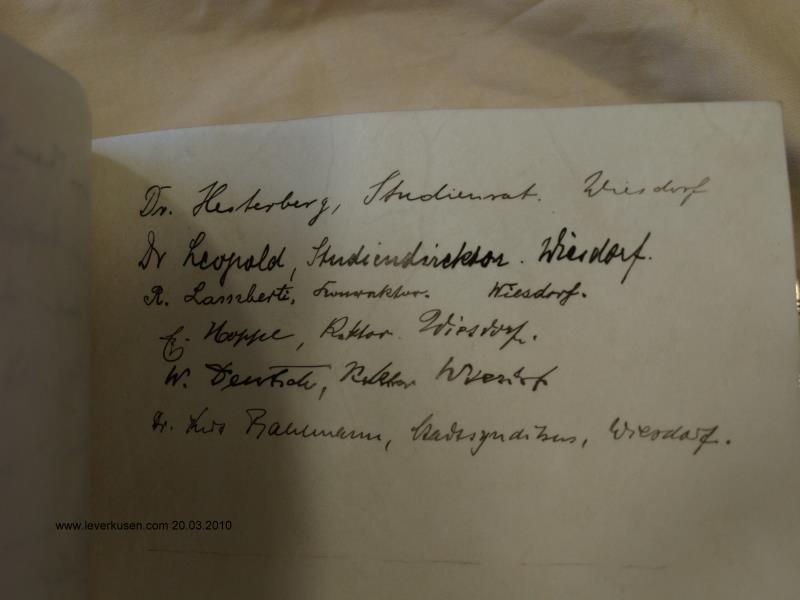 Dr. Hesterberg, Studienrat. Wiesdorf
Dr Leopold, Studiendirektor. Wiesdorf.
R. Lamberti, Konrektor. Wiesdorf.
E. Hoppe, Rektor. Wiesdorf.
W. Deutsch, Rektor Wiesdorf
Dr. Bahlmann, Stadtsyndikus, Wiesdorf.
www.leverkusen.com 20.03.2010